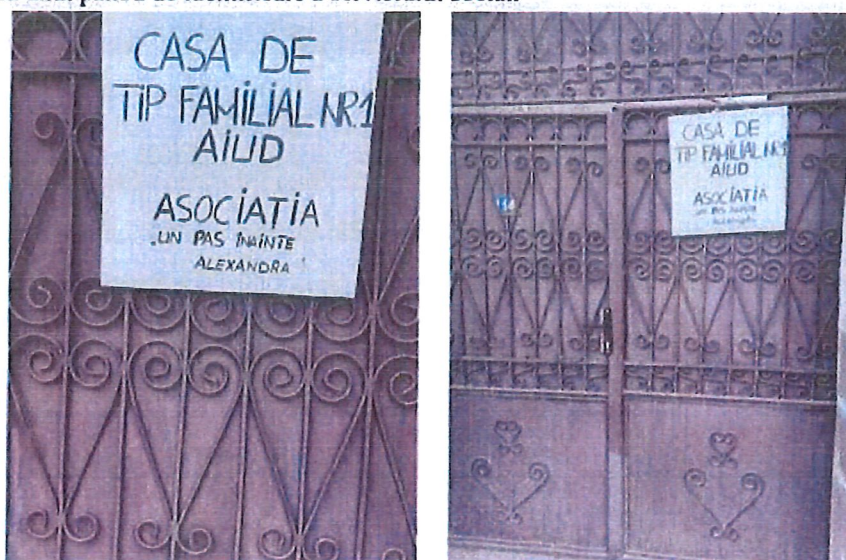 CASA DE
TIP FAMILIAL NR1
AIUD
ASOCIATIA
"UN PAS INAINTE
ALEXANDRA"
CASA DE
TIP FAMILIAL NR1
AIUD
ASOCIATIA
UN PAS INAINTE
ALEXANDRA